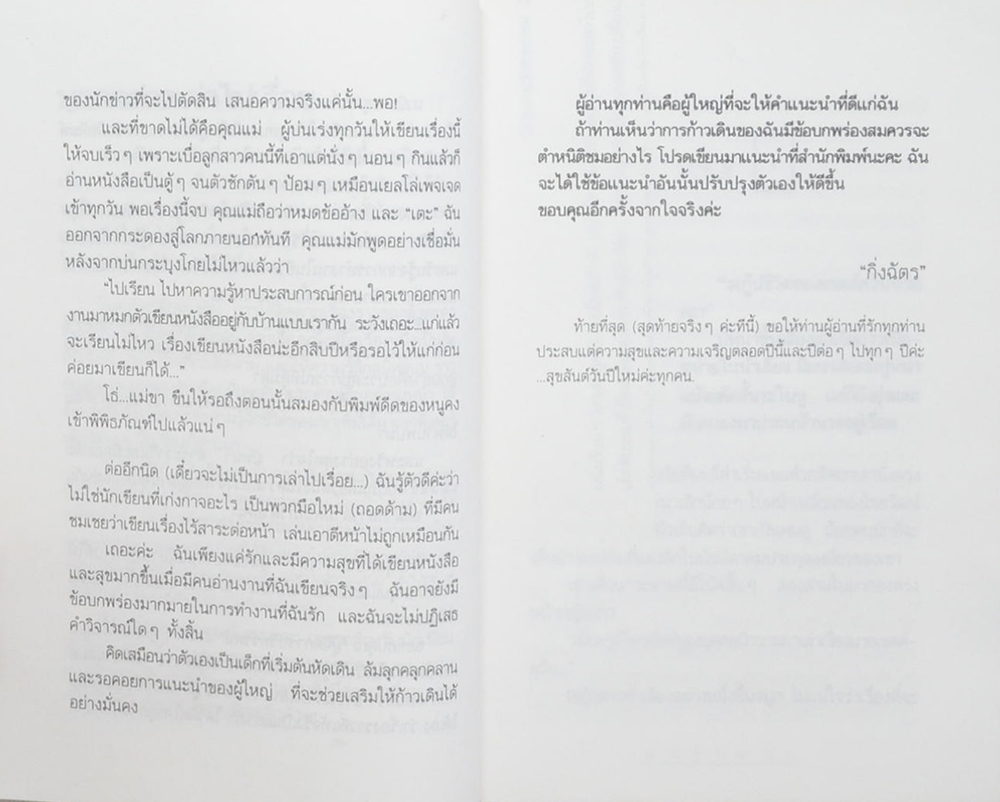 ของนักข่าวที่จะไปตัดสิน เสนอความจริงแค่นั้น...พอ!
และที่ขาดไม่ได้คือคุณแม่ ผู้บ่นเร่งทุกวันให้เขียนเรื่องนี้
ให้จบเร็วๆ เพราะเบื่อลูกสาวคนนี้ที่เอาแต่นั่งๆ นอนๆ กินแล้วก็
อ่านหนังสือเป็นตู้ๆ จนตัวชักตันๆ ป้อมๆ เหมือนเยลโล่เพจเจด
เข้าทุกวัน พอเรื่องนี้จบ คุณแม่ถือว่าหมดข้ออ้าง และ “เตะ” ฉัน
ออกจากกระดองสู่โลกภายนอกทันที คุณแม่มักพูดอย่างเชื่อมั่น
หลังจากบ่นกระบุงโกยไม่ไหวแล้วว่า
“ไปเรียน ไปหาความรู้หาประสบการณ์ก่อน ใครเขาออกจาก
งานมาหมกตัวเขียนหนังสืออยู่กับบ้านแบบเรากัน ระวังเถอะ...แก่แล้ว
จะเรียนไม่ไหว เรื่องเขียนหนังสือน่ะอีกสิบปีหรือรอไว้ให้แก่ก่อน
ค่อยมาเขียนก็ได้...”
โธ่...แม่ขา ขืนให้รอถึงตอนนั้นสมองกับพิมพ์ดีดของหนูคง
เข้าพิพิธภัณฑ์ไปแล้วแน่ๆ
ต่ออีกนิด (เดี๋ยวจะไม่เป็นการเล่าไปเรื่อย...) ฉันรู้ตัวดีค่ะว่า
ไม่ใช่นักเขียนที่เก่งกาจอะไร เป็นพวกมือใหม่ (ถอดด้าม) ที่มีคน
ชมเชยว่าเขียนเรื่องไร้สาระต่อหน้า เล่นเอาตีหน้าไม่ถูกเหมือนกัน
เถอะค่ะ ฉันเพียงแค่รักและมีความสุขที่ได้เขียนหนังสือ
และสุขมากขึ้นเมื่อมีคนอ่านงานที่ฉันเขียนจริงๆ ฉันอาจยังมี
ข้อบกพร่องมากมายในการทำงานที่ฉันรัก และฉันจะไม่ปฏิเสธ
คำวิจารณ์ใดๆ ทั้งสิ้น
คิดเสมือนว่าตัวเองเป็นเด็กที่เริ่มต้นหัดเดิน ล้มลุกคลุกคลาน
และรอคอยการแนะนำของผู้ใหญ่ ที่จะช่วยเสริมให้ก้าวเดินได้
อย่างมั่นคง
ผู้อ่านทุกท่านคือผู้ใหญ่ที่จะให้คำแนะนำที่ดีแก่ฉัน
ถ้าท่านเห็นว่าการก้าวเดินของฉันมีข้อบกพร่องสมควรจะ
ตำหนิติชมอย่างไร โปรดเขียนมาแนะนำที่สำนักพิมพ์นะคะ ฉัน
จะได้ใช้ข้อแนะนำอันนั้นปรับปรุงตัวเองให้ดีขึ้น
ขอบคุณอีกครั้งจากใจจริงค่ะ
“กิ่งฉัตร”
ท้ายที่สุด (สุดท้ายจริงๆ ค่ะทีนี้) ขอให้ท่านผู้อ่านที่รักทุกท่าน
ประสบแต่ความสุขและความเจริญตลอดปีนี้และปีต่อๆ ไปทุกๆ ปีค่ะ
...สุขสันต์วันปีใหม่ค่ะทุกคน.